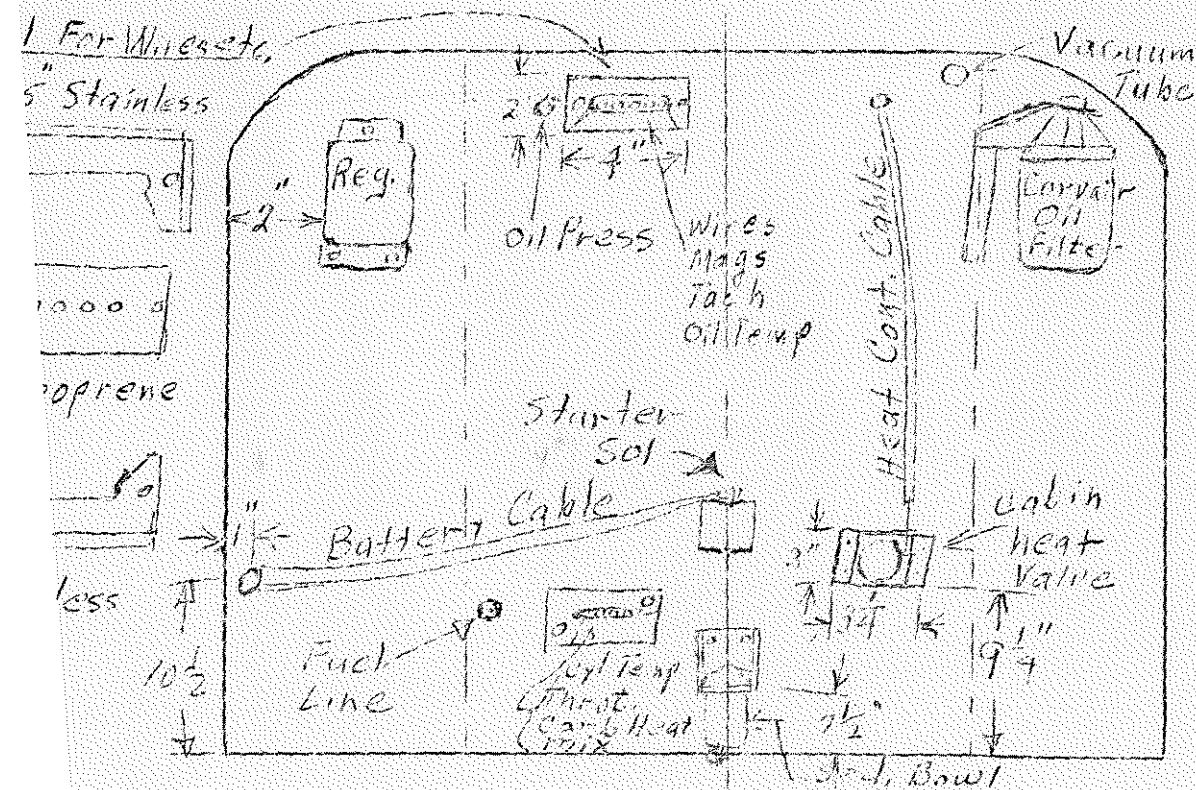 For Wires etc.
5" Stainless
Vacuum
Tube
Reg.
2"
2
4"
Oil Press
Wires
Mags
Tach
Oil Temp
Heat Cont. Cable
Corvair
Oil
Filter
oprene
Starter
Sol
Battery Cable
1"
Cabin
heat
Valve
3"
9 1/4"
less
10 1/2
Fuel
Line
Cyl Temp
Throt.
Carb Heat
Mix
Bowl